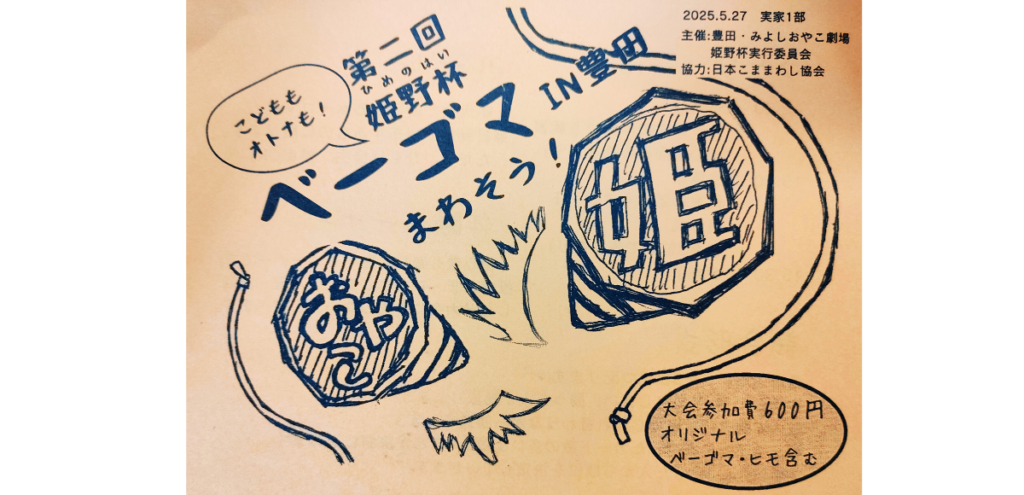 2025.5.27 実家1部
主催:豊田・みよしおやこ劇場
姫野杯実行委員会
協力:日本こままわし協会
第二回
ひめのはい
姫野杯
ベーゴマ
IN豊田
まわそう!
こどもも
オトナも!
姫
おや
こ
大会参加費600円
オリジナル
ベーゴマ・ヒモ含む